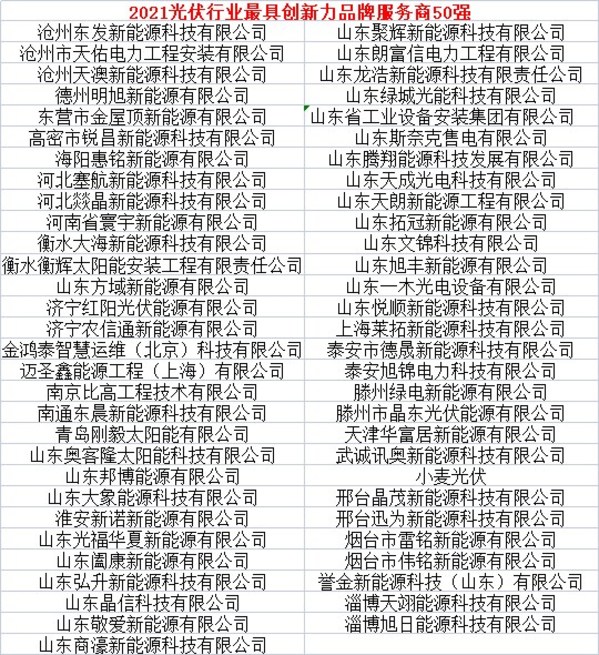 2021光伏行业最具创新力品牌服务商50强
沧州东发新能源科技有限公司 山东聚辉新能源科技有限公司
沧州市天佑电力工程安装有限公司 山东朗富信电力工程有限公司
沧州天澳新能源科技有限公司 山东龙浩新能源科技有限责任公司
德州明旭新能源有限公司 山东绿城光能科技有限公司
东营市金屋顶新能源有限公司 山东省工业设备安装集团有限公司
高密市锐昌新能源科技有限公司 山东斯奈克售电有限公司
海阳惠铭新能源有限公司 山东腾翔能源科技发展有限公司
河北塞航新能源科技有限公司 山东天成光电科技有限公司
河北燚晶新能源科技有限公司 山东天朗新能源工程有限公司
河南省寰宇新能源有限公司 山东拓冠新能源有限公司
衡水大海新能源科技有限公司 山东文锦科技有限公司
衡水衡辉太阳能安装工程有限责任公司 山东旭丰新能源有限公司
山东方域新能源有限公司 山东一木光电设备有限公司
济宁红阳光伏能源有限公司 山东悦顺新能源科技有限公司
济宁农信通新能源有限公司 上海莱拓新能源科技有限公司
金鸿泰智慧运维（北京）科技有限公司 泰安市德晟新能源科技有限公司
迈圣鑫能源工程（上海）有限公司 泰安旭锦电力科技有限公司
南京比高工程技术有限公司 滕州绿电新能源有限公司
南通东晨新能源科技有限公司 滕州市晶东光伏能源有限公司
青岛刚毅太阳能有限公司 天津华富居新能源有限公司
山东奥客隆太阳能科技有限公司 武诚讯奥新能源科技有限公司
山东邦博能源有限公司 小麦光伏
山东大象新能源科技有限公司 邢台晶茂新能源科技有限公司
淮安新诺新能源有限公司 邢台迅为新能源科技有限公司
山东光福华夏新能源有限公司 烟台市雷铭新能源有限公司
山东阖康新能源有限公司 烟台市伟铭新能源有限公司
山东弘升新能源科技有限公司 誉金新能源科技（山东）有限公司
山东晶信科技有限公司 淄博天翊能源科技有限公司
山东敬爱新能源有限公司 淄博旭日能源科技有限公司
山东商濠新能源科技有限公司